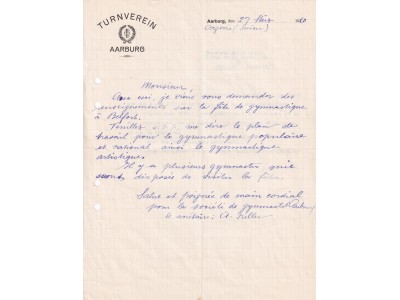 TURNVEREIN
AARBURG
Aarburg, den 27 Mars
(Suisse)
Monsieur,
je viens vous demander des
renseignements sur la fête de gymnastique
à Belfort.
Veuillez me dire le plan de
travail pour la gymnastique populaire
et national ainsi la gymnastique
artistique.
Il y a plusieurs gymnastes qui
disposés de visiter la fête
Salut et poignée de main cordial
pour la société de gymnastique